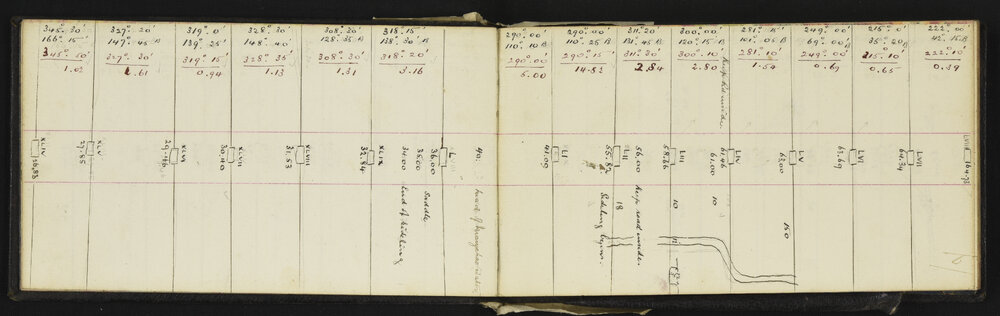 345° 30'
166° 15'
345° 50'
1.02
327° 20'
147° 45 B
327° 30'
1.61
319° 0'
139° 25'
319° 15'
0.94
328° 30'
148° 40'
328° 35'
1.13
308° 30'
128° 35 B
308° 30'
1.31
318° 15'
138° 30' B
318° 20'
3.16
290° 00'
110° 10 B
290° 00'
5.00
290° 00'
110° 25 B
290° 15'
14.82
311° 20
131° 45 B
311° 30'
2.84
300° 00'
120° 15 B
300° 10'
2.80
281° 15'
101° 05 B
281° 10'
1.54
249° 00'
69° 00 B
249° 00'
0.69
215° 0'
35° 20 B
215° 10'
0.65
222° 00
42° 15 B
222° 10'
0.39
XLIV
26.83
XLV
27.85
XLVI
29.46
XLVII
30.40
XLVIII
31.53
XLIX
32.84
34.00
End of Sideling
35.00
Saddle
36.00
L
40.
head of
41.00
LI
55.82
LII
Sideling begins.
18
56.00
Keep road inside.
58.66
LIII
10
61.00
10
61.46
LIV
Keep road inside.
63.00
LV
150
63.69
LVI
64.34
LVII
LVIII
164.73